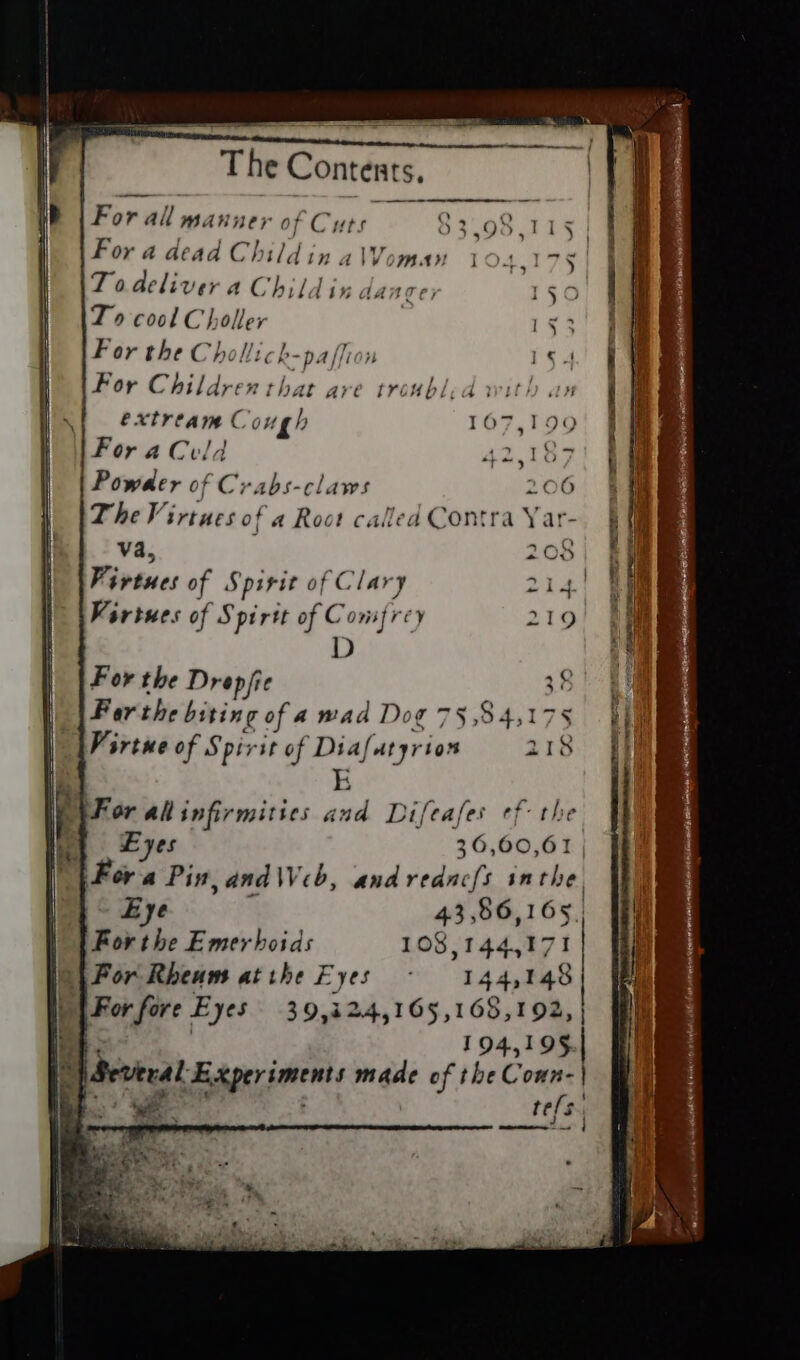 The Contents.
For all manner of Cuts 83,98,115
For a dead Child in a Woman 104,175
To deliver a Child in danger 150
To cool Choller 153
For the Chollick-paſſion 154
For Children that are troubled with an
extream Cough 167,199
For a Cold 42,187
Powder of Crabs-claws 206
The Virtues of a Root called Contra Yar-
va, 208
Virtues of Spirit of Clary 214
Virtues of Spirit of Comfrey 219
D
For the Dropſie 38
For the biting of a mad Dog 75,84,175
Virtue of Spirit of Diaſatyrion 218
E
For all infirmities and Diſeaſes of the
Eyes 36,60,61
For a Pin, and Web, and redneſs in the
Eye 43,86,165.
For the Emerhoids 108,144,171
For Rheum at the Eyes 144,148
For ſore Eyes 39,124,165,168,192,
194,195.
Several Experiments made of the Coun-
teſs